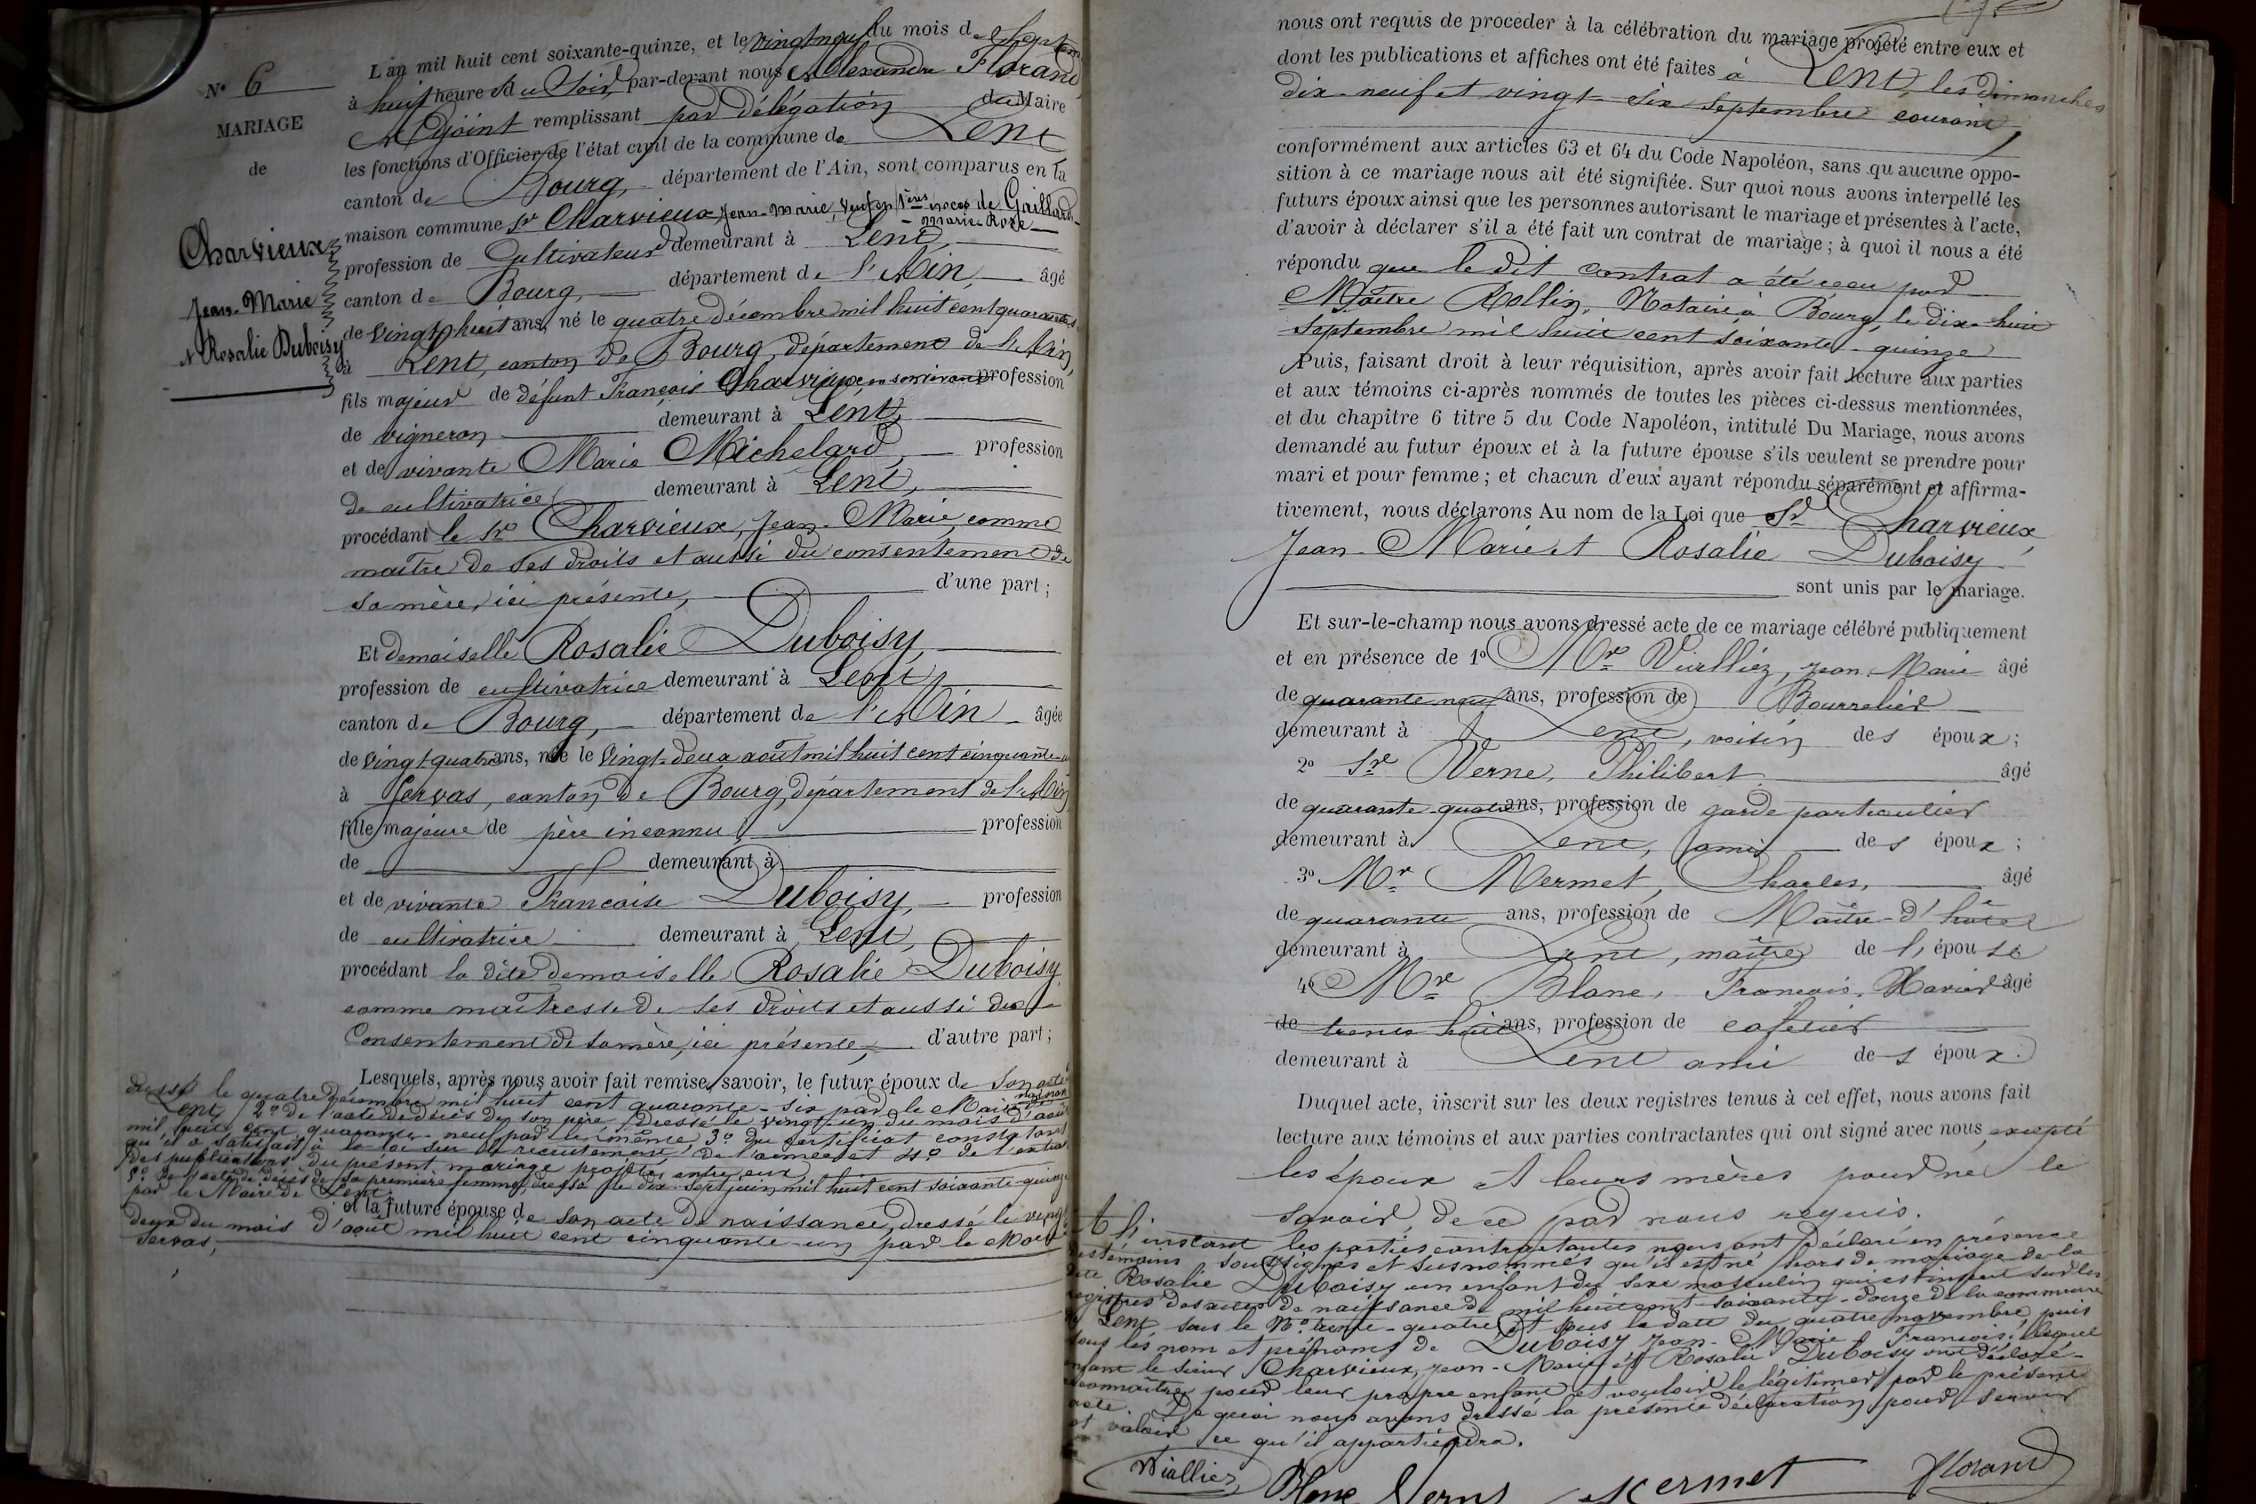 N° 6
MARIAGE
de
Charvieux
Jean-Marie
et Rosalie Duboisy
L'an mil huit cent soixante-quinze, et le vingt-neuf du mois de Septembre
à huit heure s du Soir, par-devant nous Alexandre Florand,
Adjoint remplissant par délégation du Maire
les fonctions d'Officier de l'état civil de la commune de Lent
canton de Bourg, département de l'Ain, sont comparus en la
maison commune Sr Charvieux, Jean-Marie, veuf en 1ères noces de Gaillard
Marie-Roze
profession de Cultivateur demeurant à Lent,
canton de Bourg, département de l'Ain, âgé
de vingt-huit ans, né le quatre décembre mil huit cent quarante-six
à Lent, canton de Bourg, département de l'Ain,
fils majeur de défunt François Charvieux, en son vivant profession
de vigneron demeurant à Lent,
et de vivante Marie Michelard, profession
de cultivatrice demeurant à Lent,
procédant le Sr Charvieux, Jean-Marie, comme
maître de ses droits et aussi du consentement de
sa mère, ici présente, d'une part ;
Et demoiselle Rosalie Duboisy,
profession de cultivatrice demeurant à Lent,
canton de Bourg, département de l'Ain âgée
de vingt-quatre ans, née le vingt-deux août mil huit cent cinquante-un
à Servas, canton de Bourg, département de l'Ain,
fille majeure de père inconnu, profession
de demeurant à
et de vivante Françoise Duboisy, profession
de cultivatrice demeurant à Lent,
procédant la dite demoiselle Rosalie Duboisy
comme maîtresse de ses droits et aussi du
Consentement de sa mère, ici présente, d'autre part ;
Lesquels, après nous avoir fait remise, savoir, le futur époux de son acte de naissance
dressé le quatre décembre mil huit cent quarante-six par le Maire de
Lent, 2° de l'acte de décès de son père, dressé le vingt-un du mois d'août
mil huit cent quarante-neuf par le même, 3° du certificat constatant
qu'il a satisfait à la loi sur le recrutement de l'armée et 4° de l'extrait
des publications du présent mariage projeté entre eux,
5° de l'acte de décès de sa première femme, dressé le dix-sept juin mil huit cent soixante-quinze
par le Maire de Lent.
et la future épouse de son acte de naissance, dressé le vingt-
deux du mois d'août mil huit cent cinquante-un par le Maire de
Servas,
nous ont requis de procéder à la célébration du mariage projeté entre eux et
dont les publications et affiches ont été faites à Lent, les dimanches
dix-neuf et vingt-six septembre courant,
conformément aux articles 63 et 64 du Code Napoléon, sans qu'aucune oppo-
sition à ce mariage nous ait été signifiée. Sur quoi nous avons interpellé les
futurs époux ainsi que les personnes autorisant le mariage et présentes à l'acte,
d'avoir à déclarer s'il a été fait un contrat de mariage ; à quoi il nous a été
répondu que le dit contrat a été reçu par
Maître Rollin, Notaire à Bourg, le dix-huit
Septembre mil huit cent soixante-quinze
Puis, faisant droit à leur réquisition, après avoir fait lecture aux parties
et aux témoins ci-après nommés de toutes les pièces ci-dessus mentionnées,
et du chapitre 6 titre 5 du Code Napoléon, intitulé Du Mariage, nous avons
demandé au futur époux et à la future épouse s'ils veulent se prendre pour
mari et pour femme ; et chacun d'eux ayant répondu séparément et affirma-
tivement, nous déclarons Au nom de la Loi que Sr Charvieux,
Jean-Marie et Rosalie Duboisy
sont unis par le mariage.
Et sur-le-champ nous avons dressé acte de ce mariage célébré publiquement
et en présence de 1° Mr Vialliez, Jean-Marie âgé
de quarante-neuf ans, profession de Bourrelier
demeurant à Lent, voisin des époux ;
2° Sr Verne, Philibert âgé
de quarante-quatre ans, profession de garde particulier
demeurant à Lent, ami des époux ;
3° Mr Mermet, Charles, âgé
de quarante ans, profession de Maître-d'hôtel
demeurant à Lent, maître de l'épouse
4° Mr Blanc, François-Xavier âgé
de trente huit ans, profession de cafetier
demeurant à Lent ami des époux.
Duquel acte, inscrit sur les deux registres tenus à cet effet, nous avons fait
lecture aux témoins et aux parties contractantes qui ont signé avec nous, excepté
les époux et leurs mères pour ne le
savoir, de ce par nous requis.
A l'instant les parties contractantes nous ont déclaré en présence
des témoins soussignés et susnommés qu'il est né hors de mariage de la
dite Rosalie Duboisy un enfant du sexe masculin qui est inscrit sur les
registres des actes de naissance de mil huit cent soixante-douze de la commune
de Lent sous le N° trente-quatre et sous la date du quatre novembre, puis
sous les nom et prénoms de Duboisy Jean-Marie François. Lequel
enfant le sieur Charvieux, Jean-Marie et Rosalie Duboisy ont déclaré
reconnaître pour leur propre enfant et vouloir le légitimer par le présent
acte. De quoi nous avons dressé la présente déclaration pour servir
et valoir ce qu'il appartiendra.
Vialliez Blanc Verne Mermet Florand